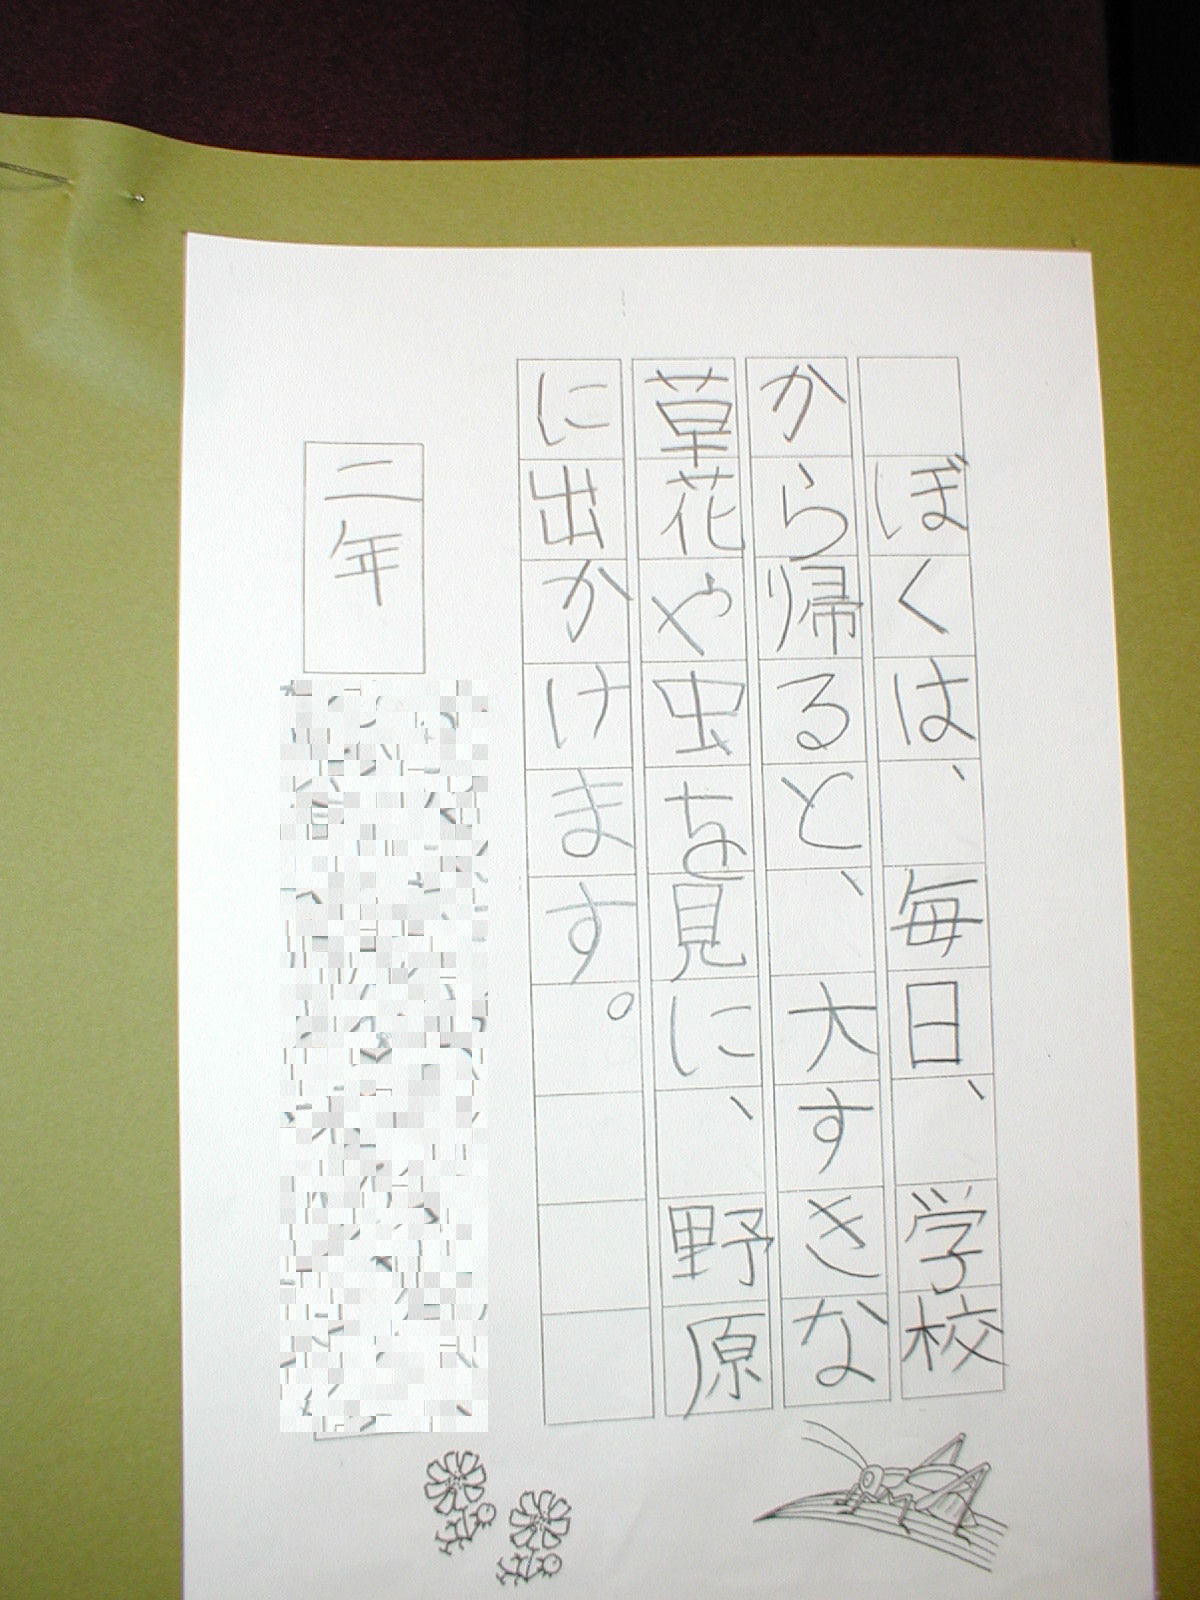 ぼくは、毎日、学校
から帰ると、大すきな
草花や虫を見に、野原
に出かけます。
二年